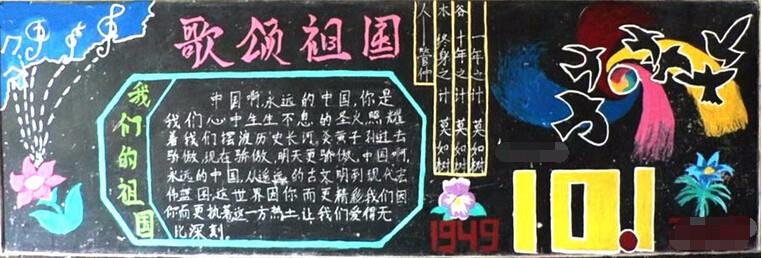 歌颂祖国
我们的祖国
中国啊,永远的中国,你是
我们心中生生不息的圣火,照耀
着我们摆渡历史长河,炎黄子孙过去
骄傲,现在骄傲,明天更骄傲,中国啊,
永远的中国,从遥远的古文明到现代宏
伟蓝图,这世界因你而更精彩我们因
你而更执著这一方热土,让我们爱得无
比深刻.
一年之计 莫如树
谷 十年之计 莫如树
木 终身之计 莫如树
人——管仲
1949
10.1